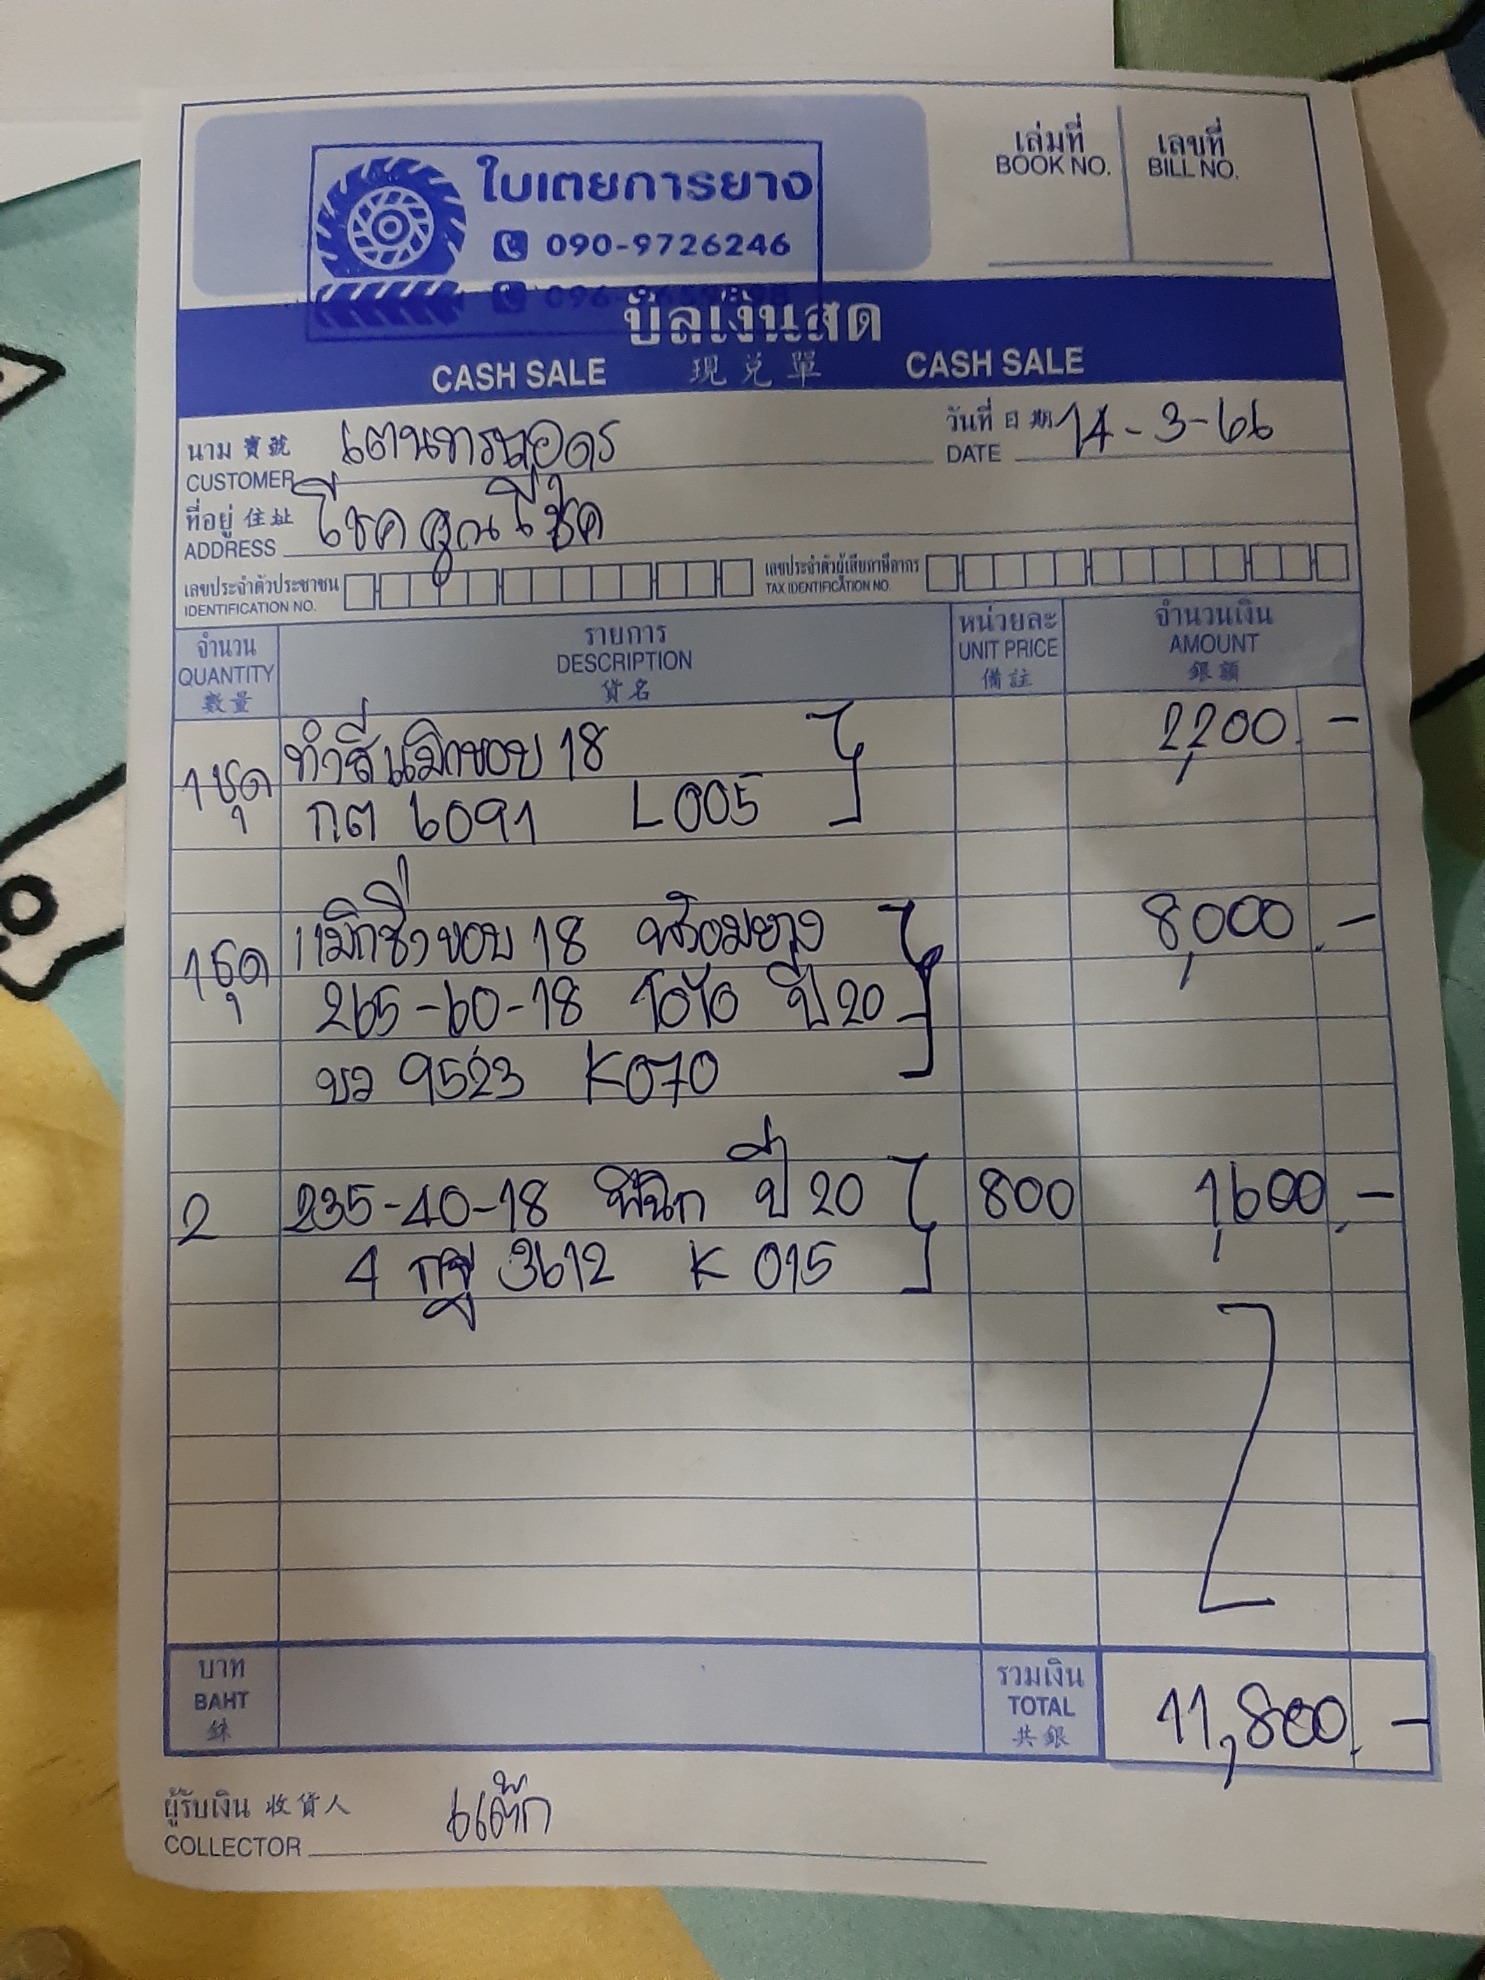 ใบเตยการยาง
090-9726246
เล่มที่ เลขที่
BOOK NO. BILL NO.
บิลเงินสด
CASH SALE 現兌單 CASH SALE
นาม 寶號 วันที่ 日期 14-3-66
CUSTOMER DATE
ที่อยู่ 住址 โชคคูณโชค
ADDRESS
เลขประจำตัวประชาชน เลขประจำตัวผู้เสียภาษีอากร
IDENTIFICATION NO. TAX IDENTIFICATION NO.
จำนวน รายการ หน่วยละ จำนวนเงิน
QUANTITY DESCRIPTION UNIT PRICE AMOUNT
數量 貨名 備註 銀額
1ชุด ทำสีแม็กขอบ 18 2,200 -
กต 6091 L005
1ชุด แม็กซิ่งขอบ 18 พร้อมยาง 8,000 -
265-60-18 โตโย ปี 20
ขว 9523 K070
2 235-40-18 ปี 20 800 1,600 -
4 3612 K 015
บาท รวมเงิน
BAHT TOTAL 11,800 -
銖 共銀
ผู้รับเงิน 收貨人 แต๊ก
COLLECTOR